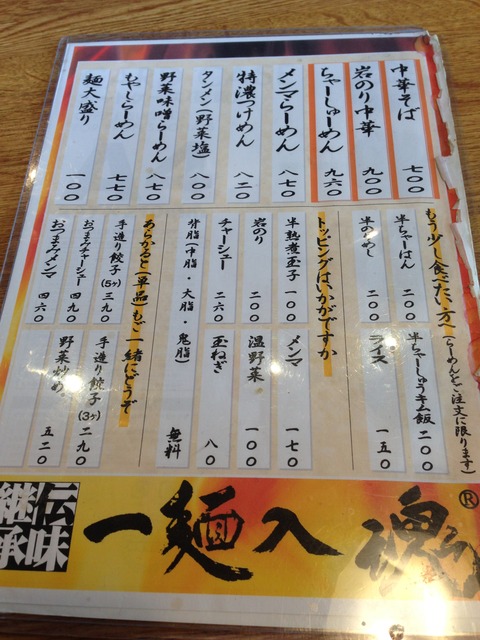 中華そば 七〇〇
岩のり中華 九〇〇
ちゃーしゅーめん 九六〇
メンマらーめん 八七〇
特濃つけめん 八二〇
タンメン(野菜塩) 八〇〇
野菜味噌らーめん 八七〇
もやしらーめん 七七〇
麺大盛り 一〇〇
もう少し食べたい方へ(らーめんをご注文に限ります)
半ちゃーはん 二〇〇
半ちゃーしゅうキム飯 二〇〇
半のりめし 二〇〇
ライス 一五〇
トッピングはいかがですか
半熟煮玉子 一〇〇
メンマ 一七〇
岩のり 二〇〇
温野菜 一〇〇
チャーシュー 二六〇
玉ねぎ 八〇
背脂(中脂・大脂・鬼脂) 無料
あらかると(単品)もご一緒にどうぞ
手造り餃子(5ヶ) 三九〇
手造り餃子(3ヶ) 二九〇
おつまみチャーシュー 四九〇
野菜炒め 五二〇
おつまみメンマ 四六〇
伝味
継承
一麺入魂
®